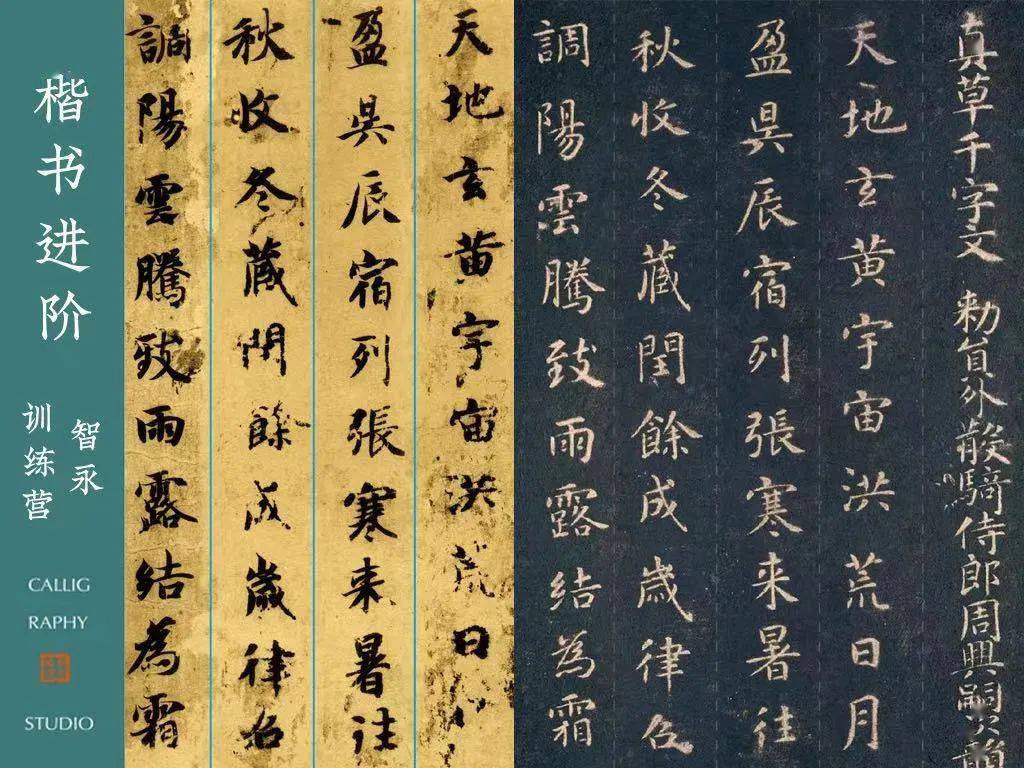 楷书进阶
智永
训练营
CALLIG
RAPHY
STUDIO
天地玄黄宇宙洪荒日
盈昃辰宿列張寒来暑往
秋收冬藏閏餘成歲律召
調陽雲騰致雨露結為霜
真草千字文 勅員外散騎侍郎周興嗣次韻
天地玄黄宇宙洪荒日月
盈昃辰宿列張寒来暑往
秋收冬藏閏餘成歲律召
調陽雲騰致雨露結為霜